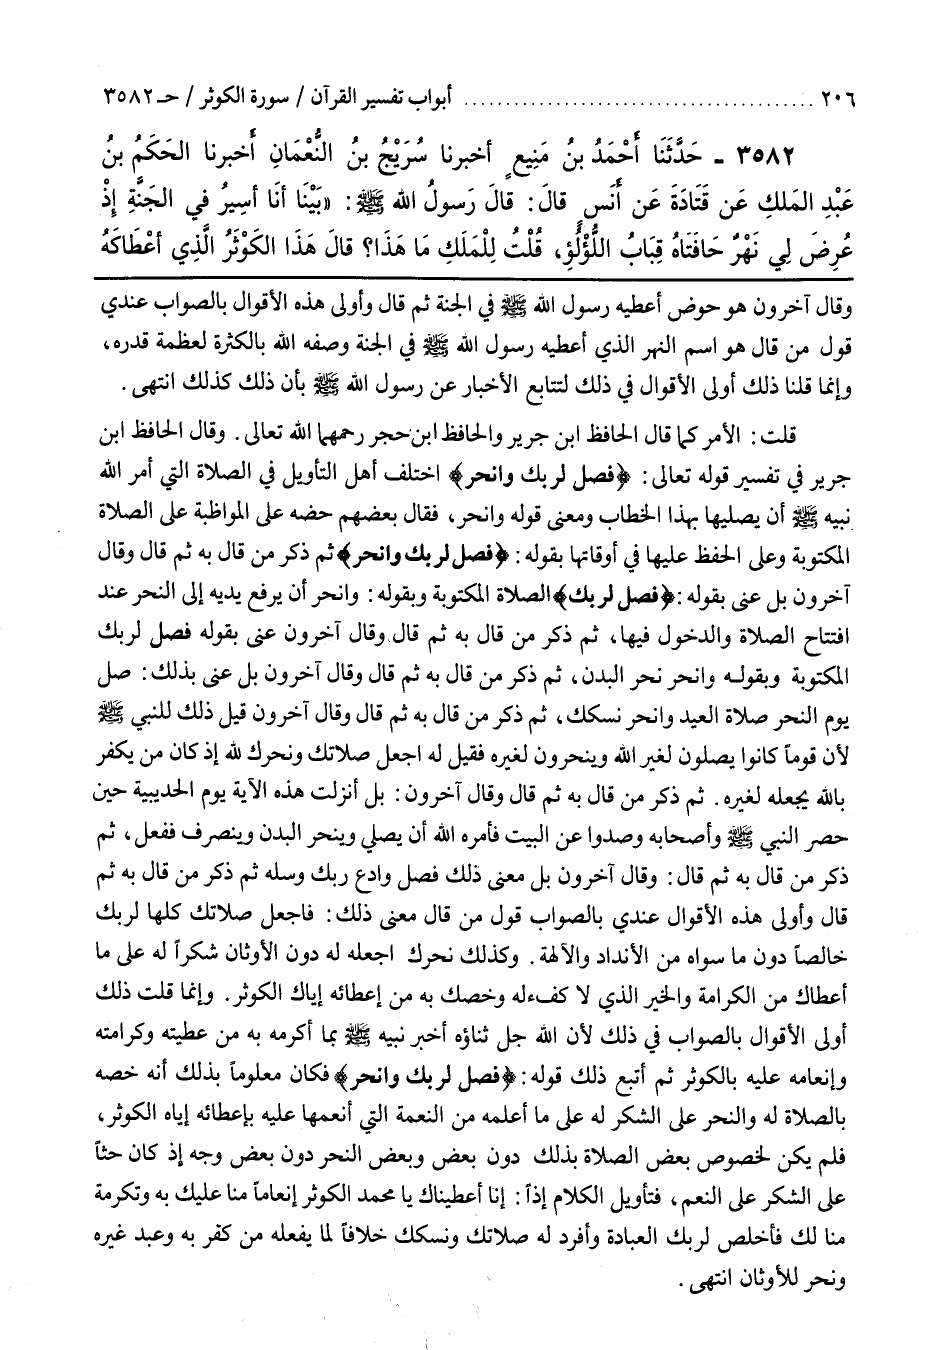 ٢٠٦ ........................................ أبواب تفسير القرآن / سورة الكوثر / حـ ٣٥٨٢
٣٥٨٢ ـ حَدَّثَنَا أَحْمَدُ بنُ مَنِيعٍ أخبرنا سُرَيْجُ بنُ النُّعْمَانِ أخبرنا الحَكَمُ بنُ
عَبْدِ المَلكِ عَن قَتَادَةَ عَن أَنَسٍ قالَ: قالَ رَسولُ الله ﷺ: «بَيْنَا أنَا أسِيرُ في الجَنَّةِ إذْ
عُرِضَ لِي نَهْرٌ حَافَتَاهُ قِبَابُ اللُّؤْلُؤِ، قُلْتُ لِلْمَلَكِ مَا هَذَا؟ قالَ هَذَا الكَوْثَرُ الَّذِي أعْطَاكَهُ
وقال آخرون هو حوض أعطيه رسول الله ﷺ في الجنة ثم قال وأولى هذه الأقوال بالصواب عندي
قول من قال هو اسم النهر الذي أعطيه رسول الله ﷺ في الجنة وصفه الله بالكثرة لعظمة قدره،
وإنما قلنا ذلك أولى الأقوال في ذلك لتتابع الأخبار عن رسول الله ﷺ بأن ذلك كذلك انتهى.
قلت: الأمر كما قال الحافظ ابن جرير والحافظ ابن حجر رحمهما الله تعالى. وقال الحافظ ابن
جرير في تفسير قوله تعالى: ﴿فصل لربك وانحر﴾ اختلف أهل التأويل في الصلاة التي أمر الله
نبيه ﷺ أن يصليها بهذا الخطاب ومعنى قوله وانحر، فقال بعضهم حضه على المواظبة على الصلاة
المكتوبة وعلى الحفظ عليها في أوقاتها بقوله: ﴿فصل لربك وانحر﴾ ثم ذكر من قال به ثم قال وقال
آخرون بل عنى بقوله: ﴿فصل لربك﴾ الصلاة المكتوبة وبقوله: وانحر أن يرفع يديه إلى النحر عند
افتتاح الصلاة والدخول فيها، ثم ذكر من قال به ثم قال وقال آخرون عنى بقوله فصل لربك
المكتوبة وبقوله وانحر نحر البدن، ثم ذكر من قال به ثم قال وقال آخرون بل عنى بذلك: صل
يوم النحر صلاة العيد وانحر نسكك، ثم ذكر من قال به ثم قال وقال آخرون قيل ذلك للنبي ﷺ
لأن قوماً كانوا يصلون لغير الله وينحرون لغيره فقيل له اجعل صلاتك ونحرك لله إذ كان من يكفر
بالله يجعله لغيره. ثم ذكر من قال به ثم قال وقال آخرون: بل أنزلت هذه الآية يوم الحديبية حين
حصر النبي ﷺ وأصحابه وصدوا عن البيت فأمره الله أن يصلي وينحر البدن وينصرف ففعل، ثم
ذكر من قال به ثم قال: وقال آخرون بل معنى ذلك فصل وادع ربك وسله ثم ذكر من قال به ثم
قال وأولى هذه الأقوال عندي بالصواب قول من قال معنى ذلك: فاجعل صلاتك كلها لربك
خالصاً دون ما سواه من الأنداد والآلهة. وكذلك نحرك اجعله له دون الأوثان شكراً له على ما
أعطاك من الكرامة والخير الذي لا كفء له وخصك به من إعطائه إياك الكوثر. وإنما قلت ذلك
أولى الأقوال بالصواب في ذلك لأن الله جل ثناؤه أخبر نبيه ﷺ بما أكرمه به من عطيته وكرامته
وإنعامه عليه بالكوثر ثم أتبع ذلك قوله: ﴿فصل لربك وانحر﴾ فكان معلوماً بذلك أنه خصه
بالصلاة له والنحر على الشكر له على ما أعلمه من النعمة التي أنعمها عليه بإعطائه إياه الكوثر،
فلم يكن لخصوص بعض الصلاة بذلك دون بعض وبعض النحر دون بعض وجه إذ كان حثاً
على الشكر على النعم، فتأويل الكلام إذاً: إنا أعطيناك يا محمد الكوثر إنعاماً منا عليك به وتكرمة
منا لك فأخلص لربك العبادة وأفرد له صلاتك ونسكك خلافاً لما يفعله من كفر به وعبد غيره
ونحر للأوثان انتهى.